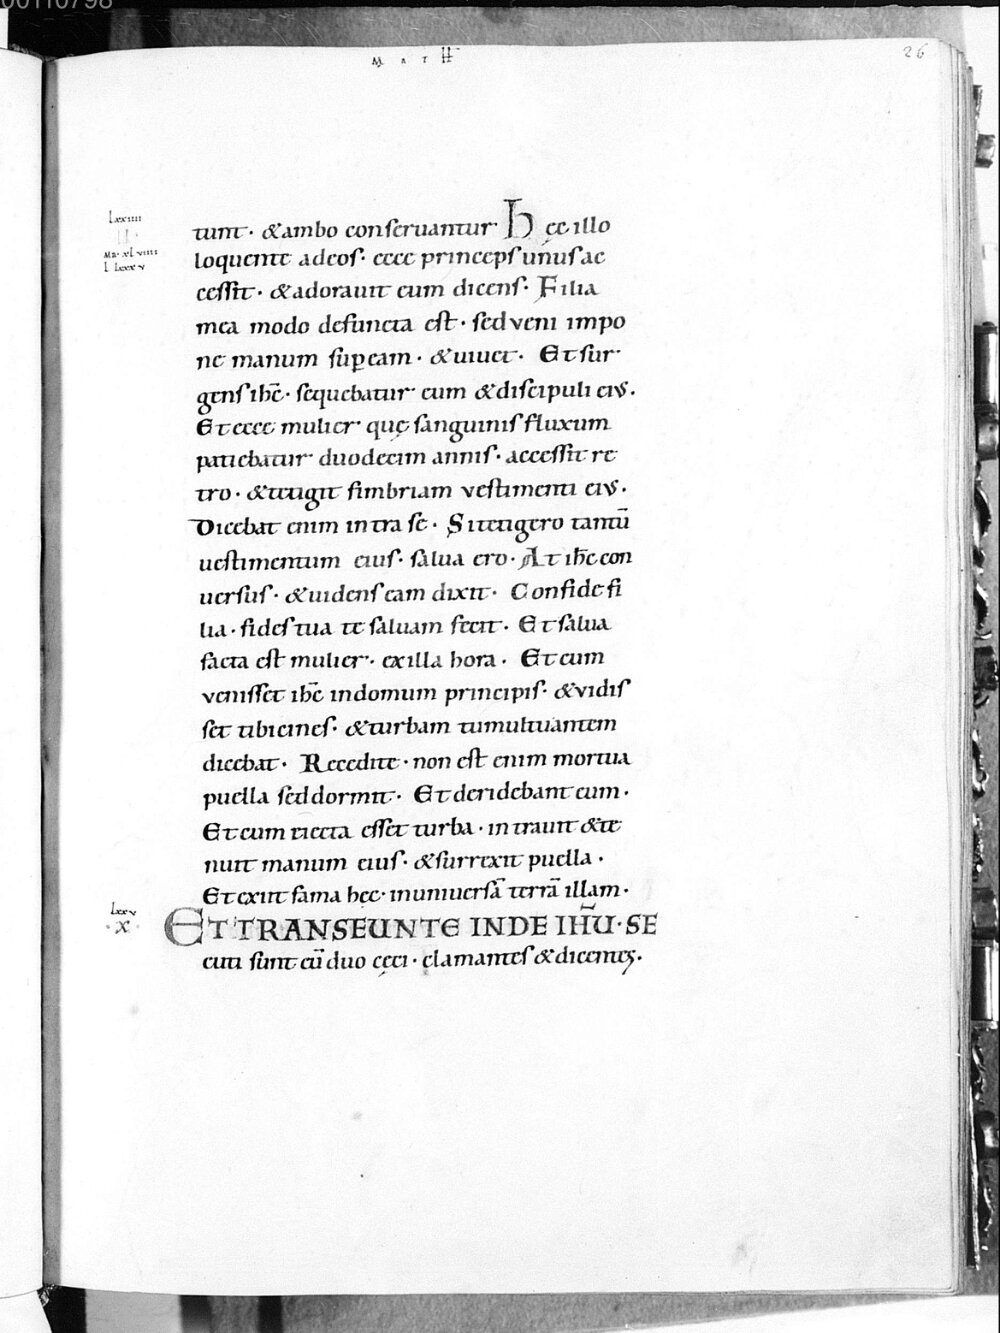 00110798
MATH
26
tunt · & ambo conseruantur hęc illo
Lxxiiii
II
Ma · xLviiii
L Lxxxv
loquente adeos · ecce princeps unus ac
cessit · & adorauit eum dicens · Filia
mea modo defuncta est · sed veni impo
ne manum sup eam · & uiuet · Et sur
gens ihc̄ · sequebatur eum & discipuli eius ·
Et ecce mulier quę sanguinis fluxum
patiebatur duodecim annis · accessit re
tro · & tetigit fimbriam vestimenti eius ·
Dicebat enim intra se · Si tetigero tantū
uestimentum eius · salua ero · At ihc̄ con
uersus · & uidens eam dixit · Confide fi
lia · fides tua te saluam fecit · Et salua
facta est mulier · ex illa hora · Et cum
venisset ihc̄ in domum principis · & vidis
set tibicines · & turbam tumultuantem
dicebat · Recedite · non est enim mortua
puella sed dormit · Et deridebant eum ·
Et cum eiecta esset turba · intrauit & te
nuit manum eius · & surrexit puella ·
Et exiit fama hęc · in uniuersā terrā illam ·
Lxxv
· X ·
ET TRANSEUNTE INDE IHŪ · SE
cuti sunt eū duo cęci · clamantes & dicentes ·